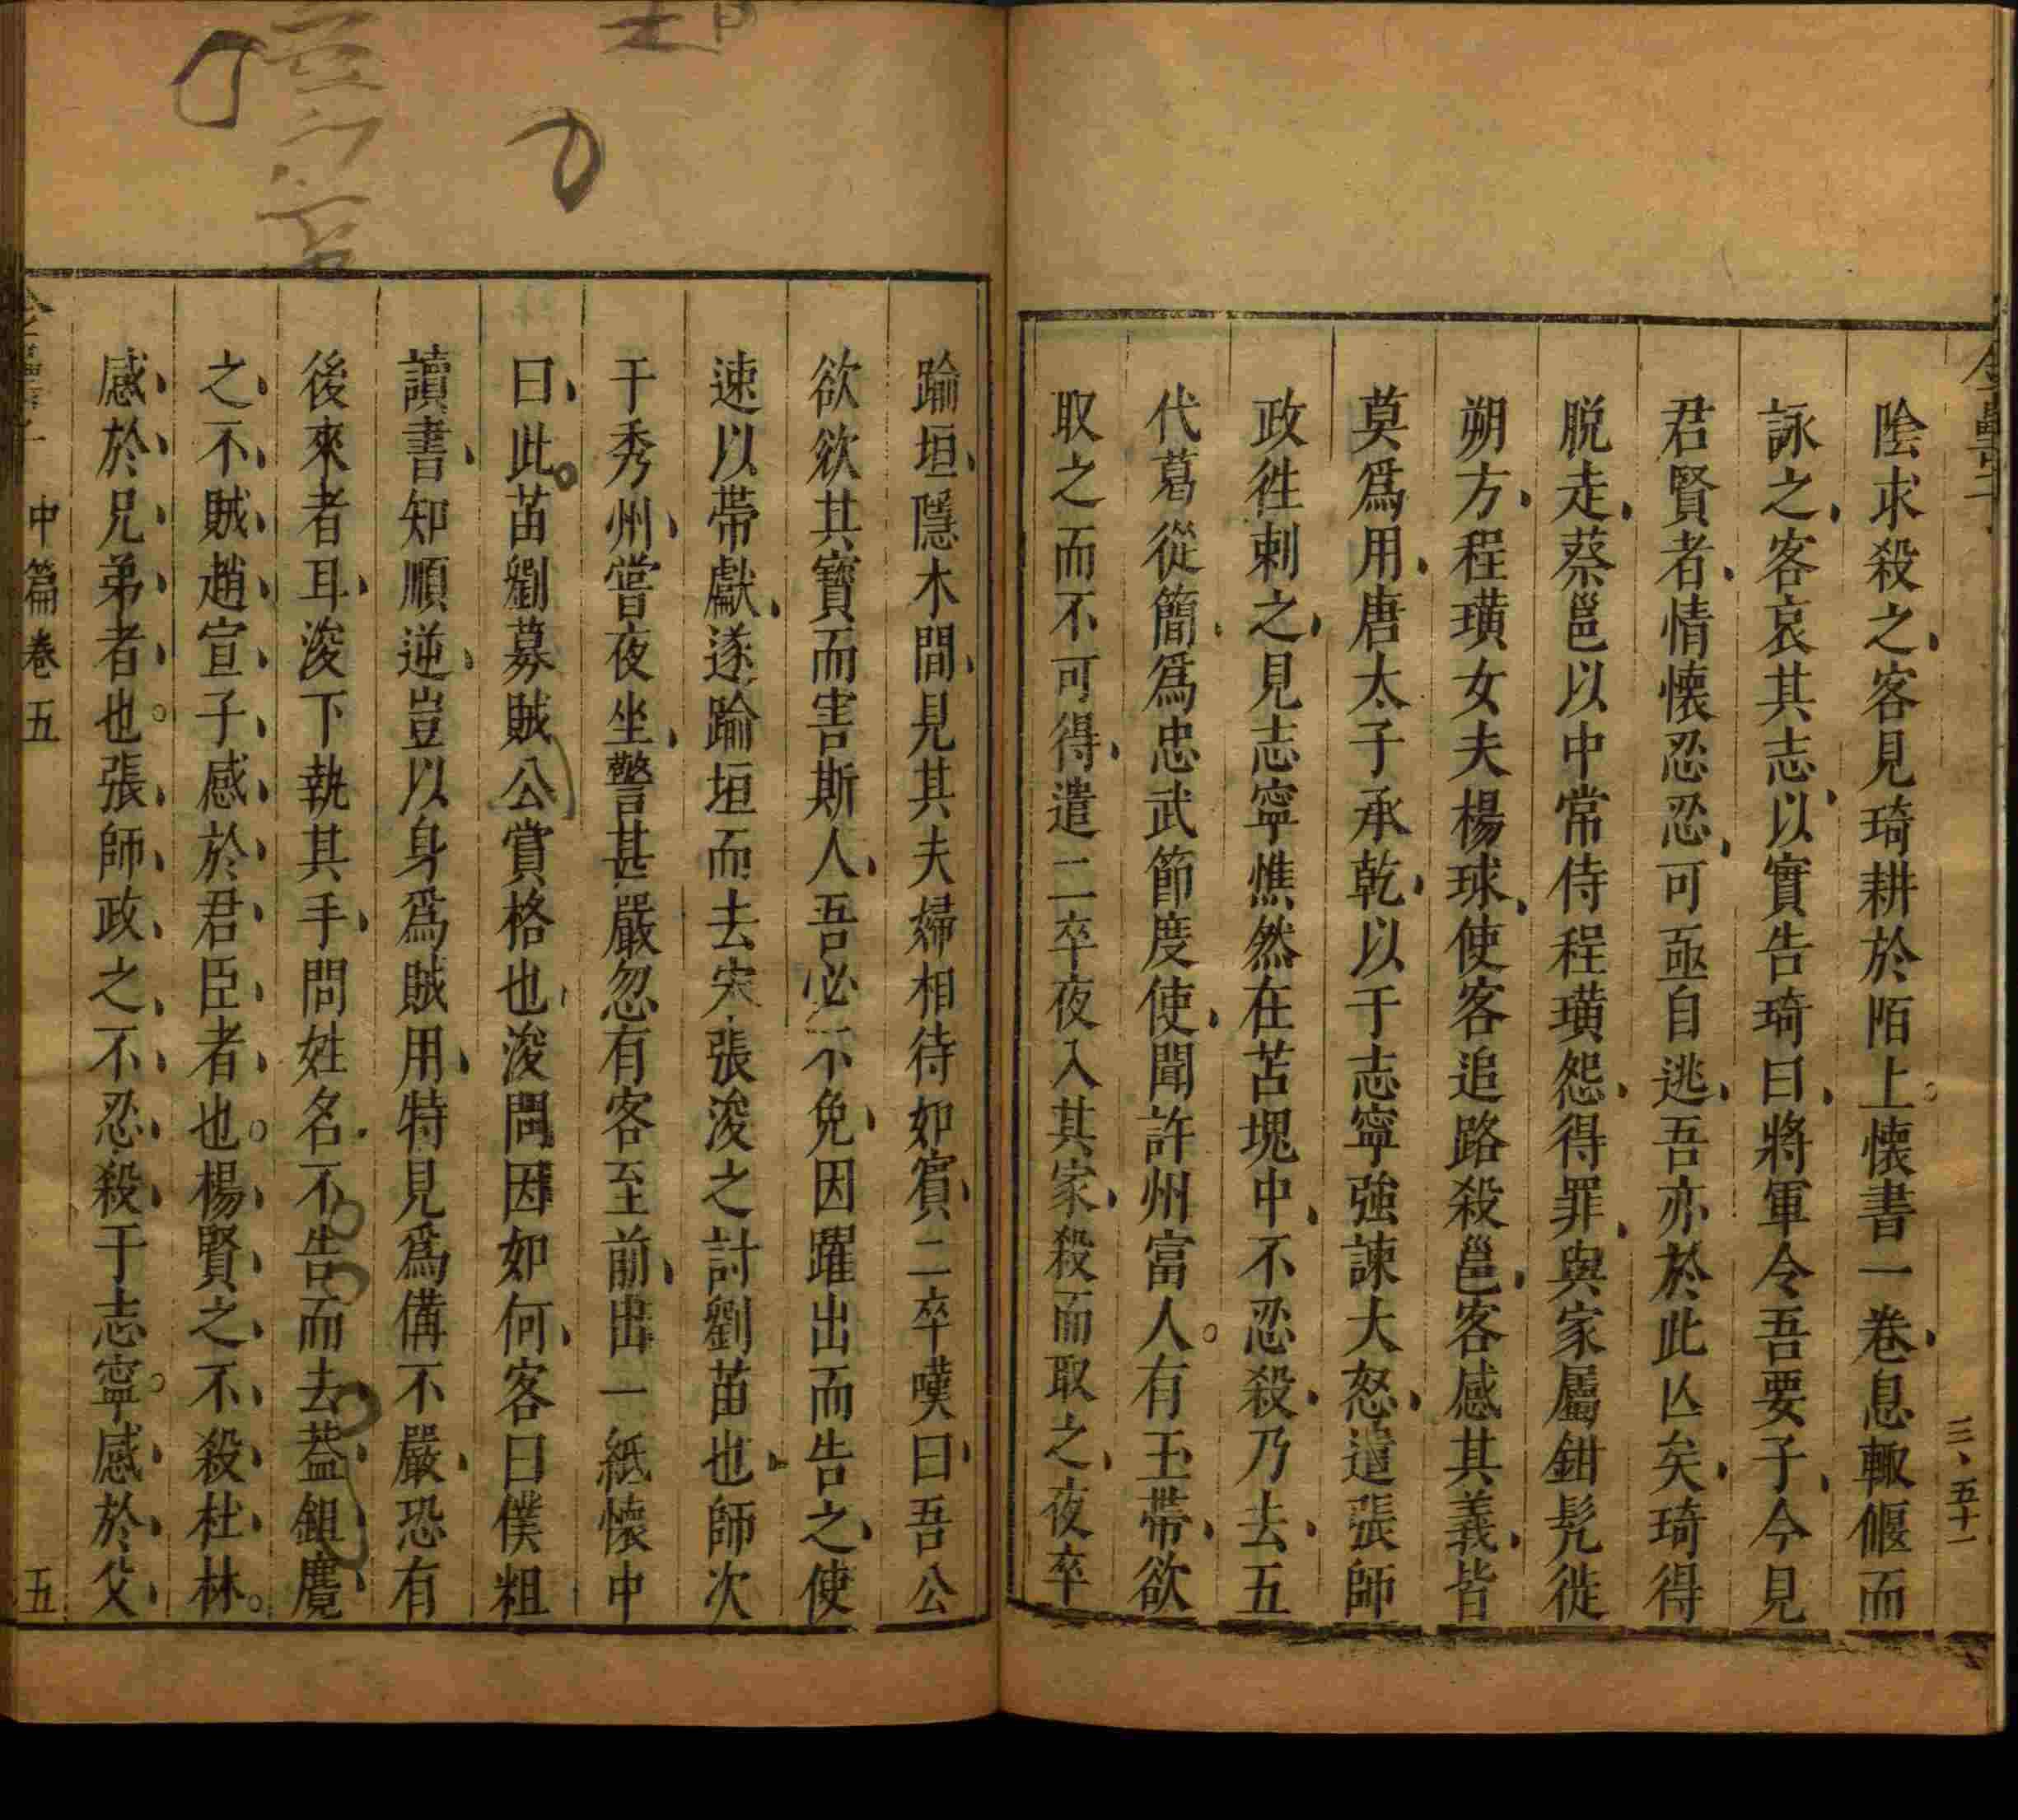 三、五十一
陰求殺之、客見琦耕於陌上。懷書一卷、息輙偃而
詠之、客哀其志、以實告琦曰、將軍令吾要子、今見
君賢者、情懷忍忍、可亟自逃、吾亦於此亾矣、琦得
脱走、蔡邕以中常侍程璜怨、得罪、與家屬鉗髠徙
朔方、程璜女夫楊球、使客追路殺邕、客感其義、皆
莫爲用、唐太子承乾、以于志寧強諫大怒、遣張師
政徃刺之、見志寧憔然在苫塊中、不忍殺、乃去、五
代葛從簡、爲忠武節度使、聞許州富人。有玉帶、欲
取之而不可得、遣二卒夜入其家、殺而取之、夜卒
踰垣、隱木間、見其夫婦相待如賓、二卒嘆曰、吾公
欲欲其寶而害斯人、吾必不免、因躍出而告之、使
速以帶獻、遂踰垣而去宋張浚之討劉苗也、師次
于秀州、嘗夜坐、警甚嚴忽有客至前、出一紙懷中
曰、此。苗劉募賊公賞格也、浚問因如何、客曰僕粗
讀書、知順逆、豈以身爲賊用、特見爲備不嚴、恐有
後來者耳、浚下執其手、問姓名、不告而去、葢鉏麑
之、不、賊、趙、宣、子、感、於、君、臣、者、也。楊、賢、之、不、殺、杜、林。
感、於、兄、弟、者、也。張、師、政、之、不、忍、殺、于志寧。感、於、父、
中篇卷五
五